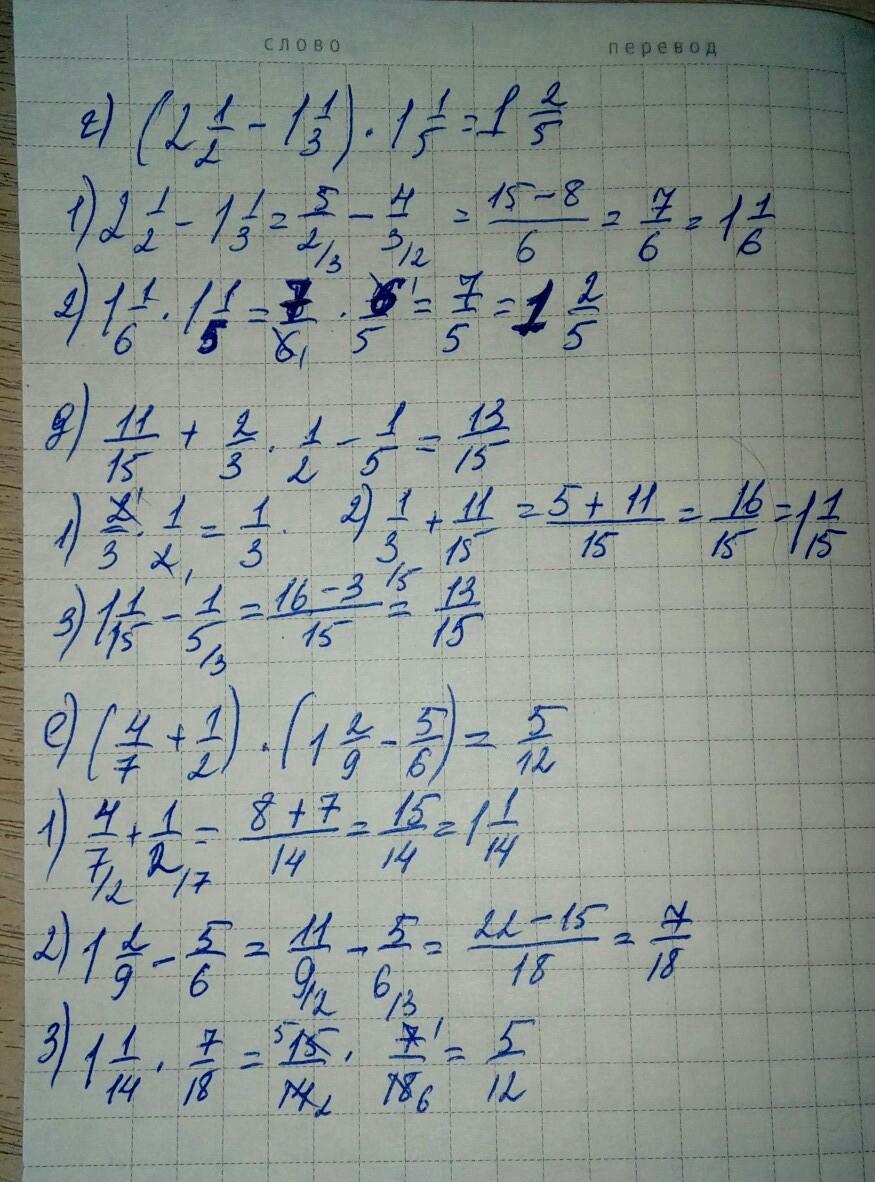 слово перевод
г) (2 1/2 - 1 1/3) · 1 1/5 = 1 2/5
1) 2 1/2 - 1 1/3 = 5/2/3 - 4/3/2 = (15-8)/6 = 7/6 = 1 1/6
2) 1 1/6 · 1 1/5 = 7/6₁ · 6¹/5 = 7/5 = 1 2/5
д) 11/15 + 2/3 · 1/2 - 1/5 = 13/15
1) 2¹/3 · 1/2₁ = 1/3 · 2) 1/3/5 + 11/15 = (5+11)/15 = 16/15 = 1 1/15
3) 1 1/15 - 1/5/3 = (16-3)/15 = 13/15
е) (4/7 + 1/2) · (1 2/9 - 5/6) = 5/12
1) 4/7/2 + 1/2/7 = (8+7)/14 = 15/14 = 1 1/14
2) 1 2/9 - 5/6 = 11/9/2 - 5/6/3 = (22-15)/18 = 7/18
3) 1 1/14 · 7/18 = ⁵15/14₂ · 7¹/18₆ = 5/12